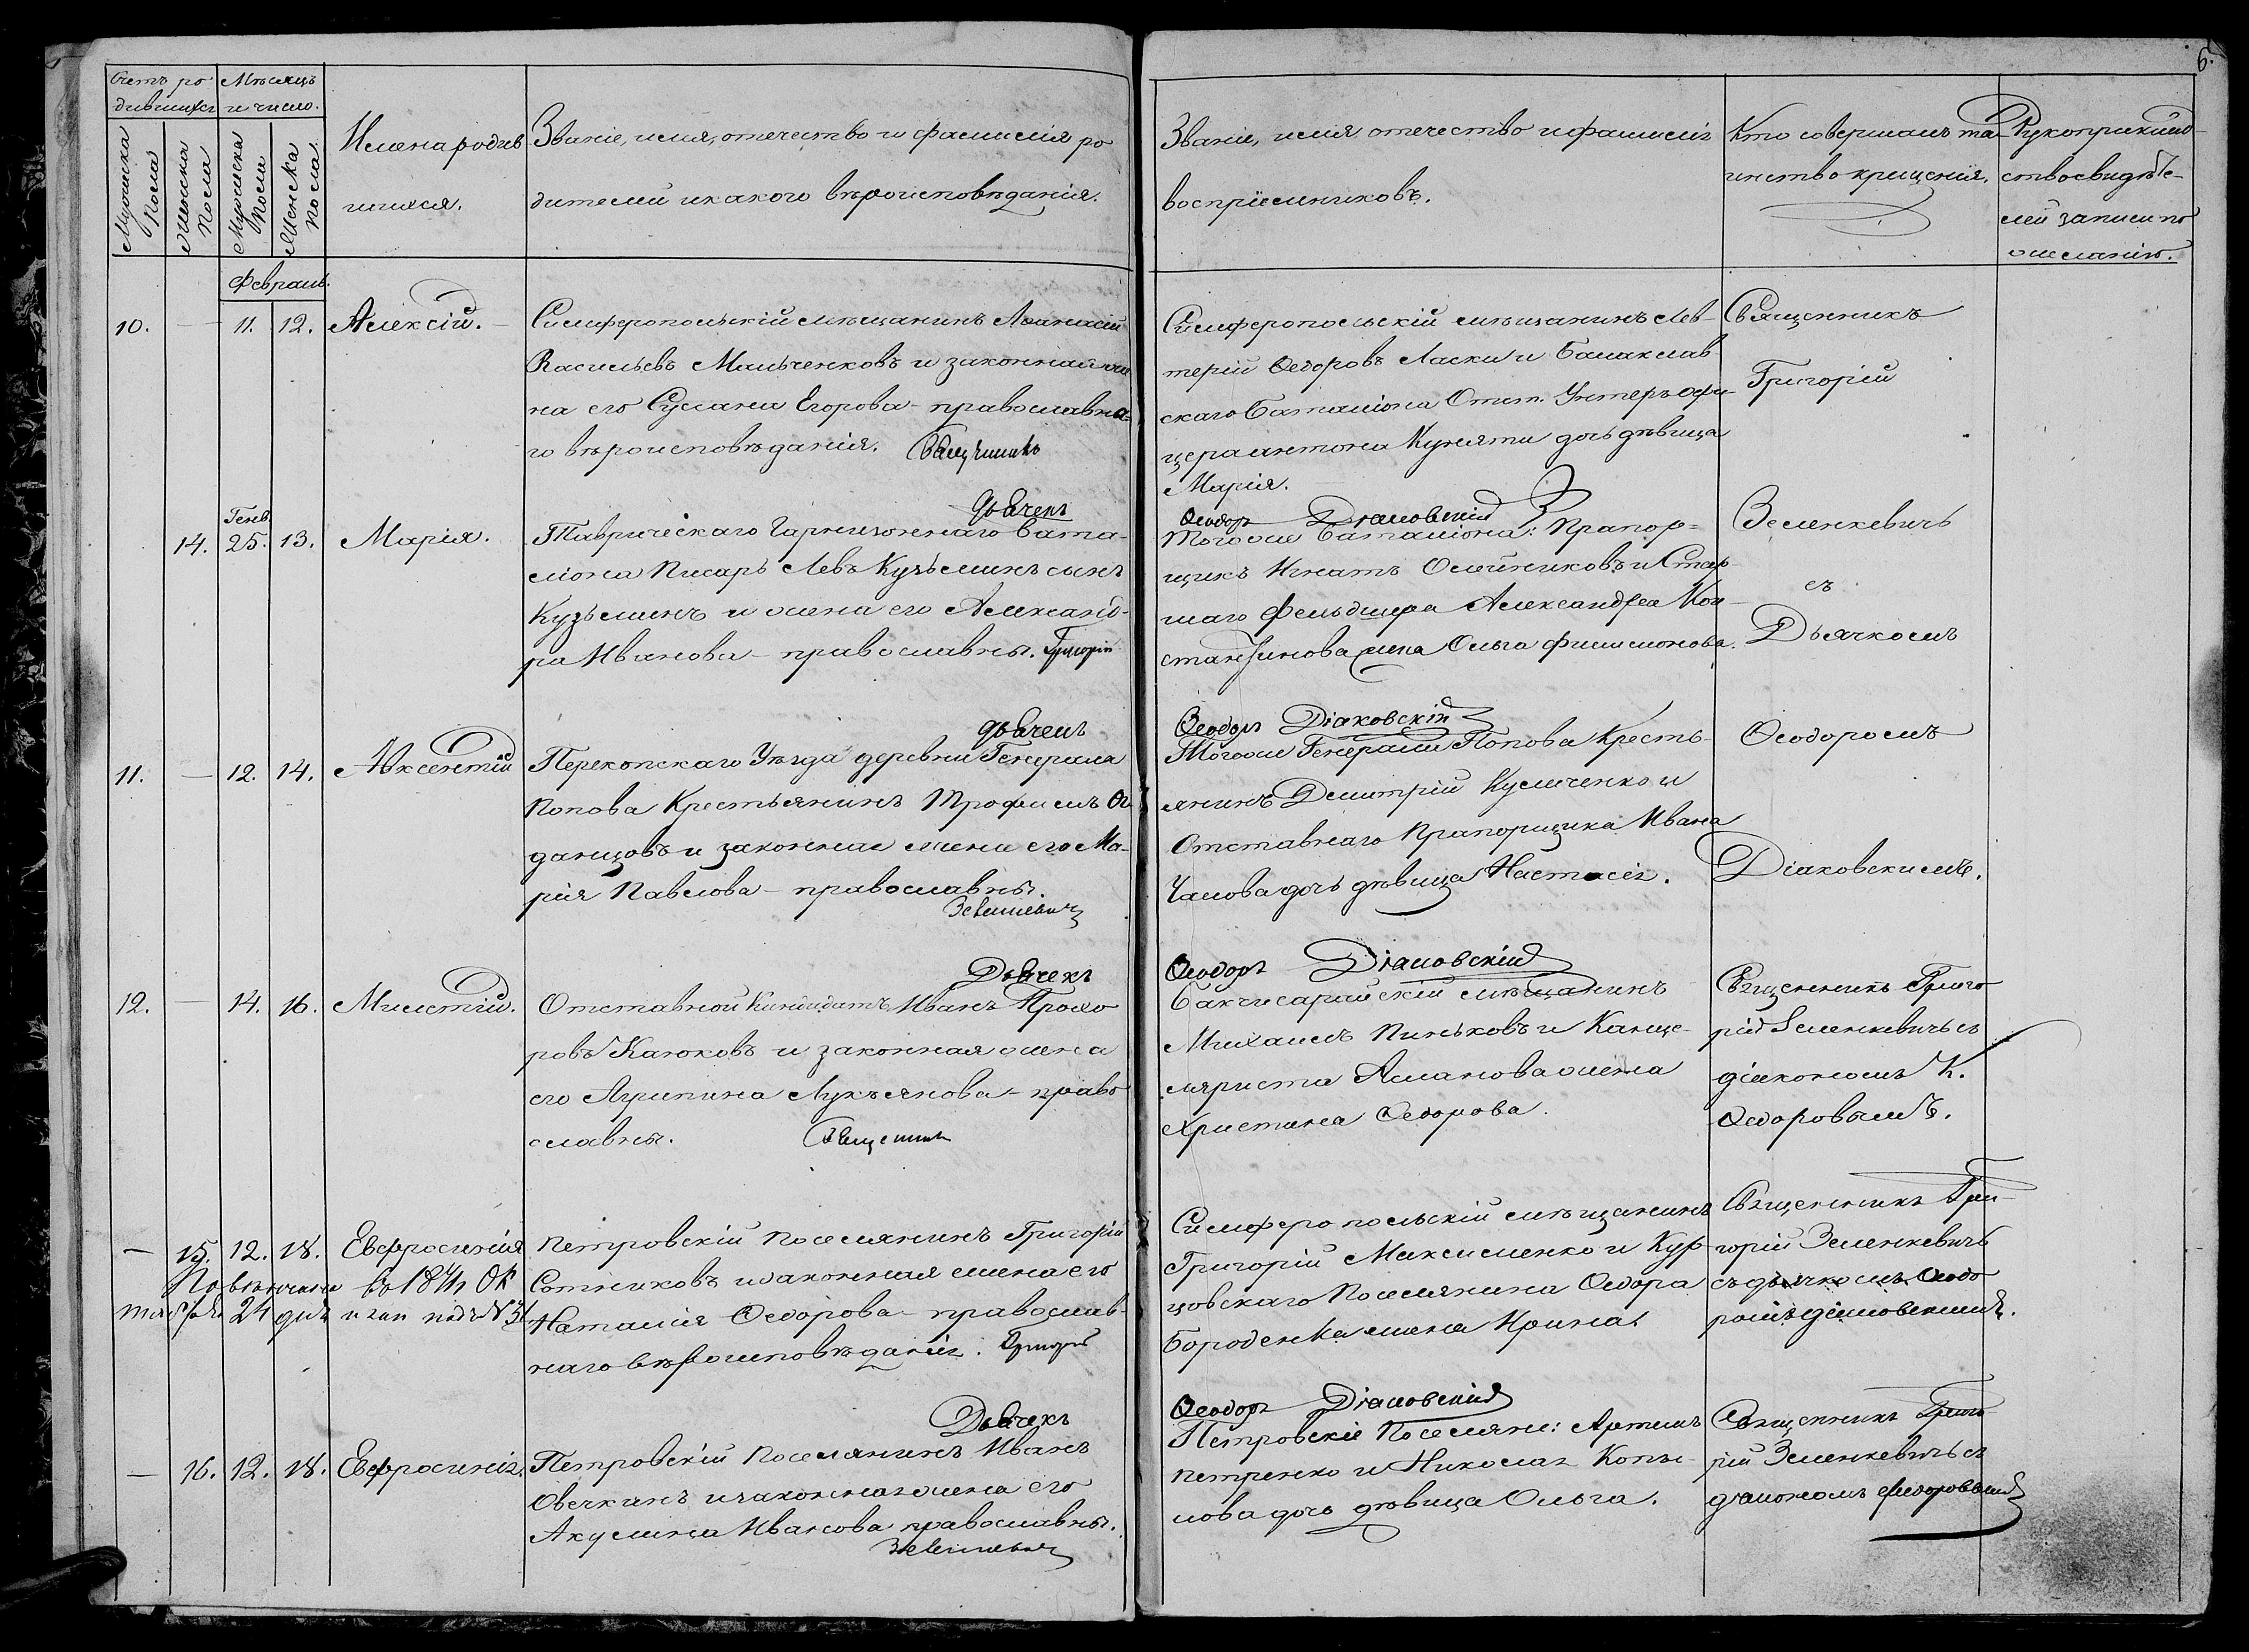 6.
Счетъ ро
дившихся
Мѣсяцъ
и число.
Мужеска
пола
Женска
пола
Мужеска
пола
Женска
пола.
Имена родив
шихся.
Званіе, имя, отечество и фамилія ро
дителей и какого вѣроисповѣданія.
Званіе, имя отечество и фамилія
воспріемниковъ.
Кто совершалъ та-
инство крещенія.
Рукоприклад-
ство свидѣте-
лей записи по
желанію.
Февраль.
10. — 11. 12. Алексій.
Симферопольскій мѣщанинъ
Васильевъ Мальченковъ и законная же
на его Сусана Егорова - православна-
го вѣроисповѣданія. Священникъ
Симферопольскій мѣщанинъ Лев-
терій Ѳедоровъ Ласки и Балаклав
скаго Баталіона Отст. Унтеръ офи-
цера Антона Куняти дочь дѣвица
Марія.
Священникъ
Григорій
Генв.
14. 25. 13. Марія.
Дьячекъ
Таврическаго Гарнизоннаго бата-
ліона Писарь Левъ Кузьминъ сынъ
Кузьминъ и жена его Александ-
ра Иванова - православны. Григорій
Ѳеодоръ Діаковскій
Тогоже баталіона: Прапор-
щикъ Игнатъ Олейниковъ и Стар
шаго фельдшера Александра Кон
стантинова жена Ольга Филимонова.
Зеленкевичъ
съ
Дьячкомъ
11. — 12. 14. Авксентій
Дьячекъ
Перекопскаго Уѣзда деревни Генерала
Попова Крестьянинъ Трофимъ Ог
данцовъ и законная жена его Ма-
рія Павлова - православны.
Зеленкевичъ
Ѳеодоръ Діаковскій
Тогоже Генерала Попова Кресть-
янинъ Дмитрій Кумиченко и
Отставнаго Прапорщика Ивана
Чалова дочь дѣвица Настасія.
Ѳеодоромъ
Діаковскимъ.
12. — 14. 16. Милетій.
Дьячекъ
Отставной Кандидатъ Иванъ Прохо
ровъ Каюковъ и законная жена
его Агрипина Лукьянова - право
славны. Священникъ
Ѳеодоръ Діаковскій
Бакчисарайскій мѣщанинъ
Михаилъ Пиньковъ и Канце-
ляриста Асланова жена
Христина Ѳедорова.
Священникъ Григо
рій Зеленкевичъ съ
діакономъ К.
Ѳедоровымъ.
— 15. 12. 18. Евфросинія
въ 1871 Ок
тября 24 дня и зап подъ №31
Петровскій поселянинъ Григорій
Сотниковъ и законная жена его
Наталія Ѳедорова - православ-
наго вѣроисповѣданія. Григорій
Симферопольскій мѣщанинъ
Григорій Максименко и Кур
цовскаго Поселянина Ѳедора
Бороденка жена Ирина.
Священникъ Гри-
горій Зеленкевичъ
съ дьячкомъ Ѳеодо
ромъ Діаковскимъ.
— 16. 12. 18. Евфросинія.
Дьячекъ
Петровскій поселянинъ Иванъ
Овечкинъ и законная жена его
Акулина Иванова православны.
Зеленкевичъ
Ѳеодоръ Діаковскій
Петровскіе Поселяне: Артемъ
Петренко и Николая Копы-
лова дочь дѣвица Ольга.
Священникъ Григо
рій Зеленкевичъ съ
діакономъ Ѳедоровымъ